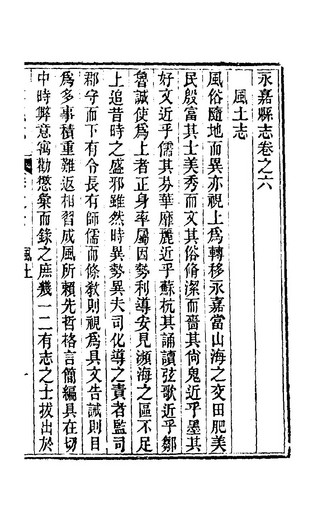 永嘉縣志卷之六
風土志
風俗隨地而異亦視上爲轉移永嘉當山海之交田肥美
民殷富其士美秀而文其俗脩潔而嗇其尙鬼近乎墨其
好文近乎儒其芬華靡麗近乎蘇杭其誦讀弦歌近乎鄒
魯誠使爲上者正身率屬因勢利導安見瀕海之區不足
上追昔時之盛邪雖然時異勢異夫司化導之責者監司
郡守而下有令長有師儒而條敎則視爲具文告誡則目
爲多事積重難返相習成風所賴先哲格言簡編具在切
中時弊意寓勸懲彙而錄之庶幾一二有志之士拔出於
風土